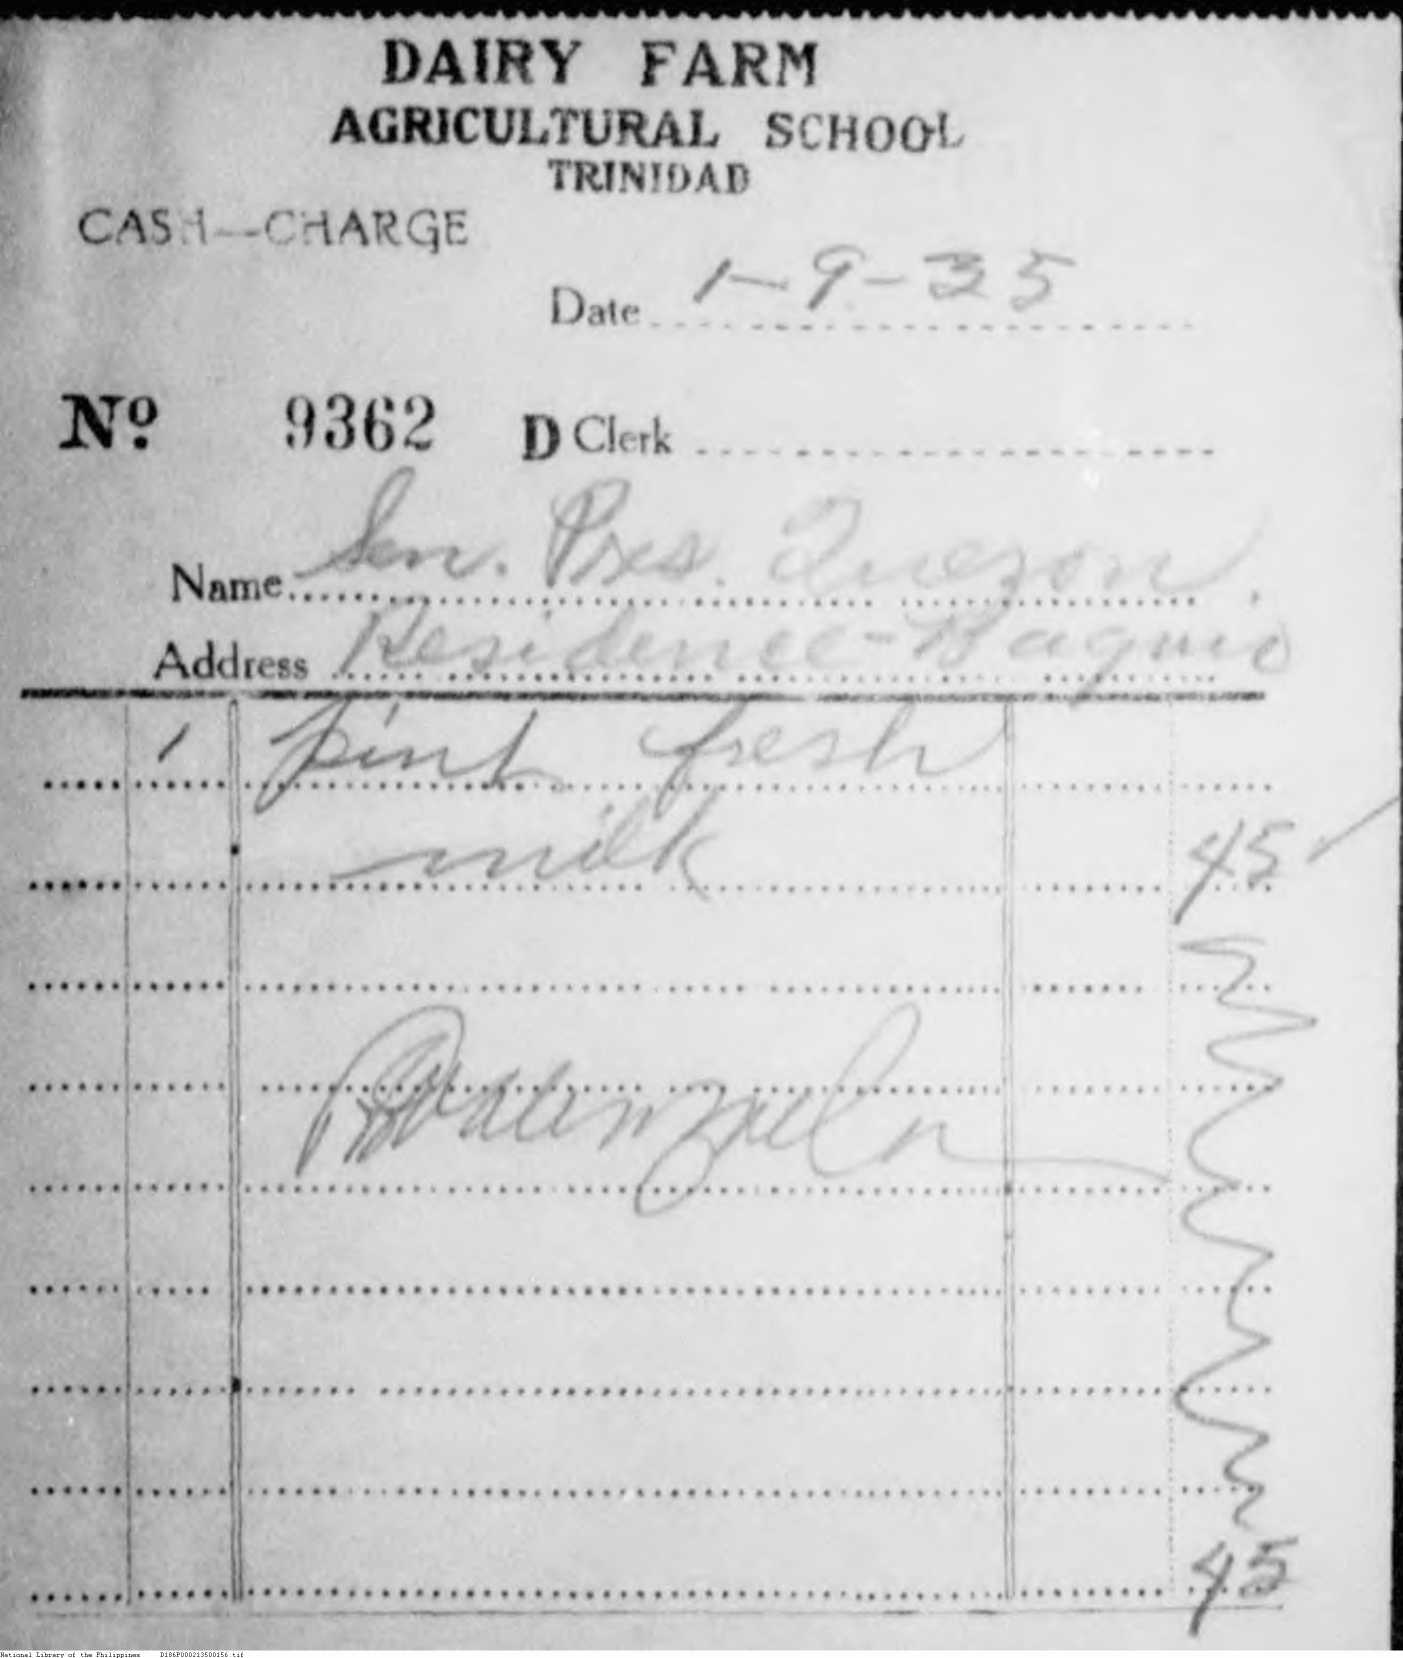 DAIRY FARM
AGRICULTURAL SCHOOL
TRINIDAD
CASH—CHARGE
Date 1-9-35
Nº 9362 D Clerk
Name Sen. Pres. Quezon.
Address Residence-Baguio
1 pint fresh
milk 45 ✓
45
National Library of the Philippines D186P000213500156.tif